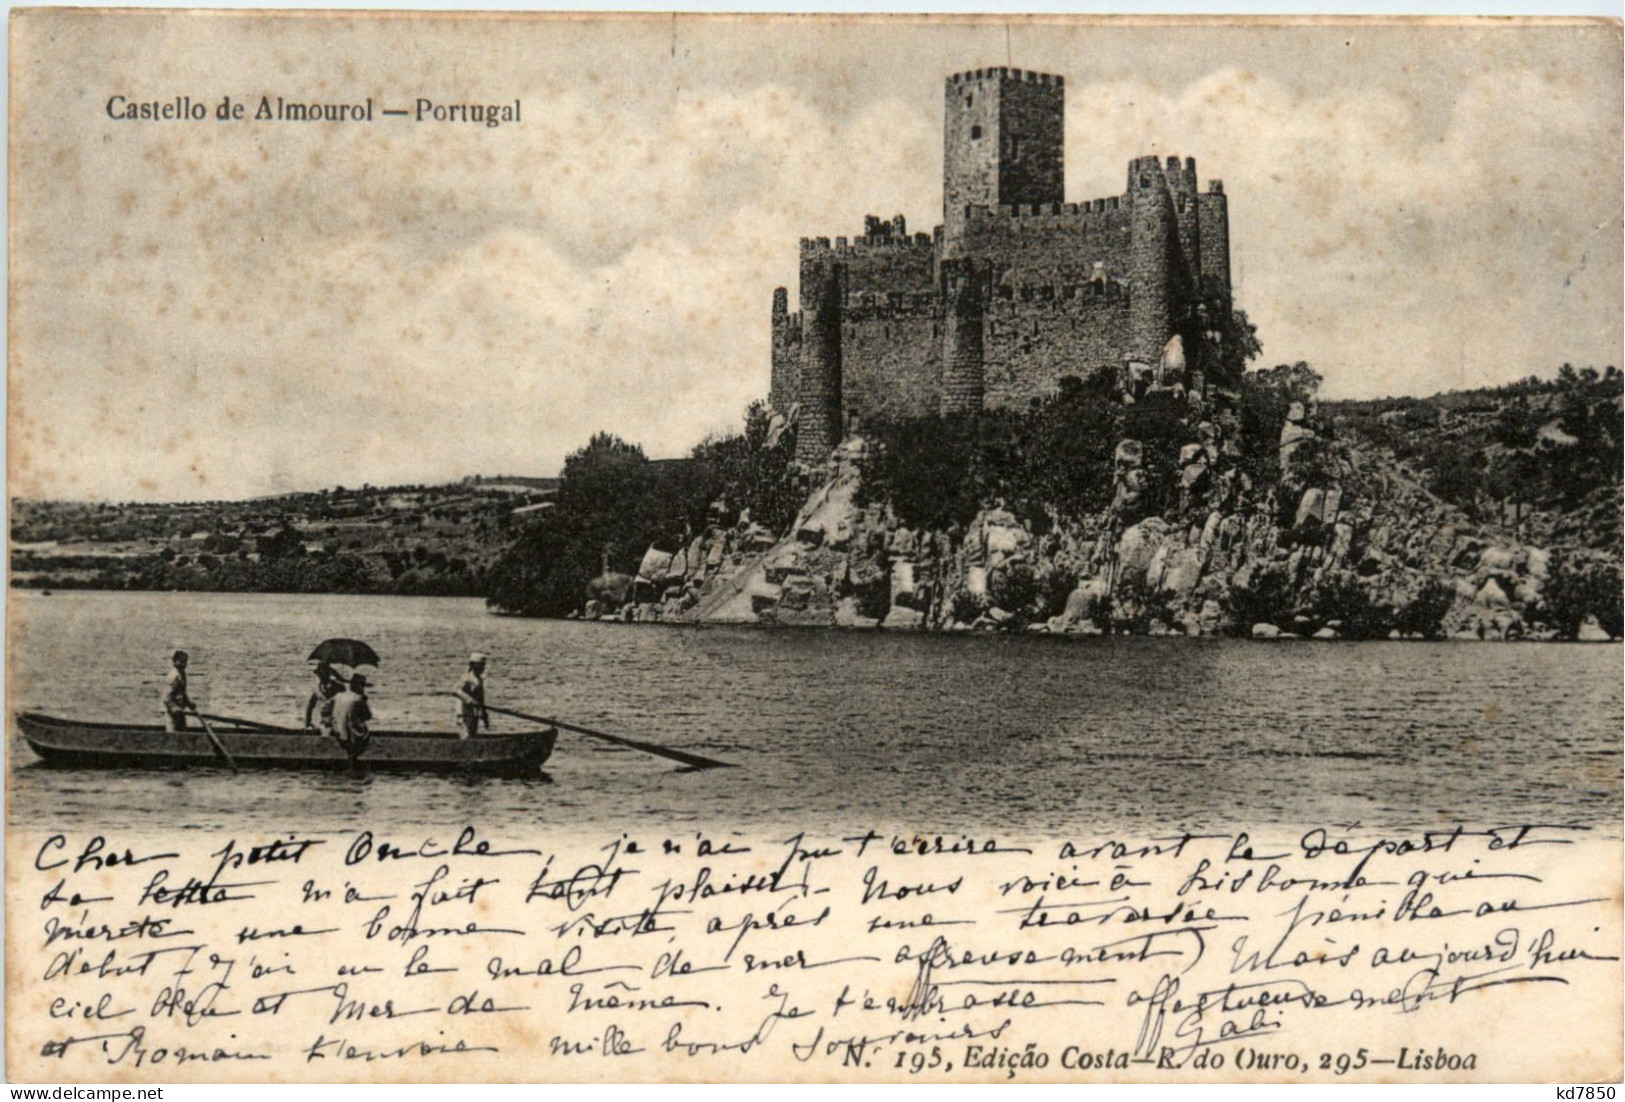 Castello de Almourol — Portugal
Cher petit Oncle, je n'ai pu t'écrire avant le départ et
ta lettre m'a fait tant plaisir. Nous voici à Lisbonne qui
mérite une bonne visite, après une traversée pénible au
début (j'ai eu le mal de mer affreusement) Mais aujourd'hui
ciel bleu et Mer de même. Je t'embrasse affectueusement
Gabi
et Romain t'envoie mille bons souvenirs
N.º 195, Edição Costa—R. do Ouro, 295—Lisboa
kd7850